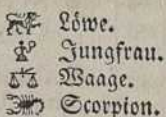 Löwe.
Jungfrau.
Waage.
Scorpion.